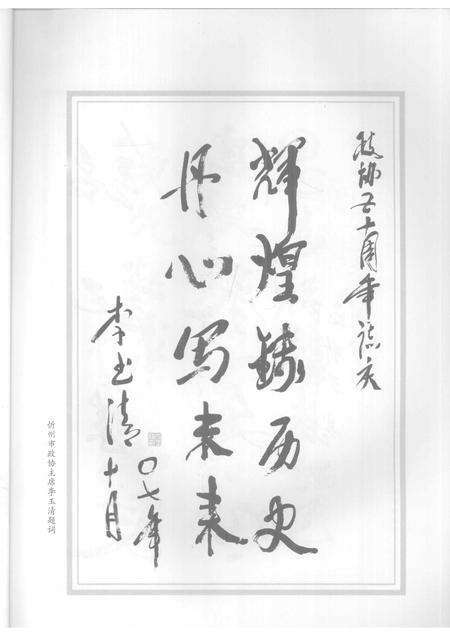 政协五十周年誌庆
辉煌铸历史
丹心写未来
〇七年
李玉清
十月
忻州市政协主席李玉清题词